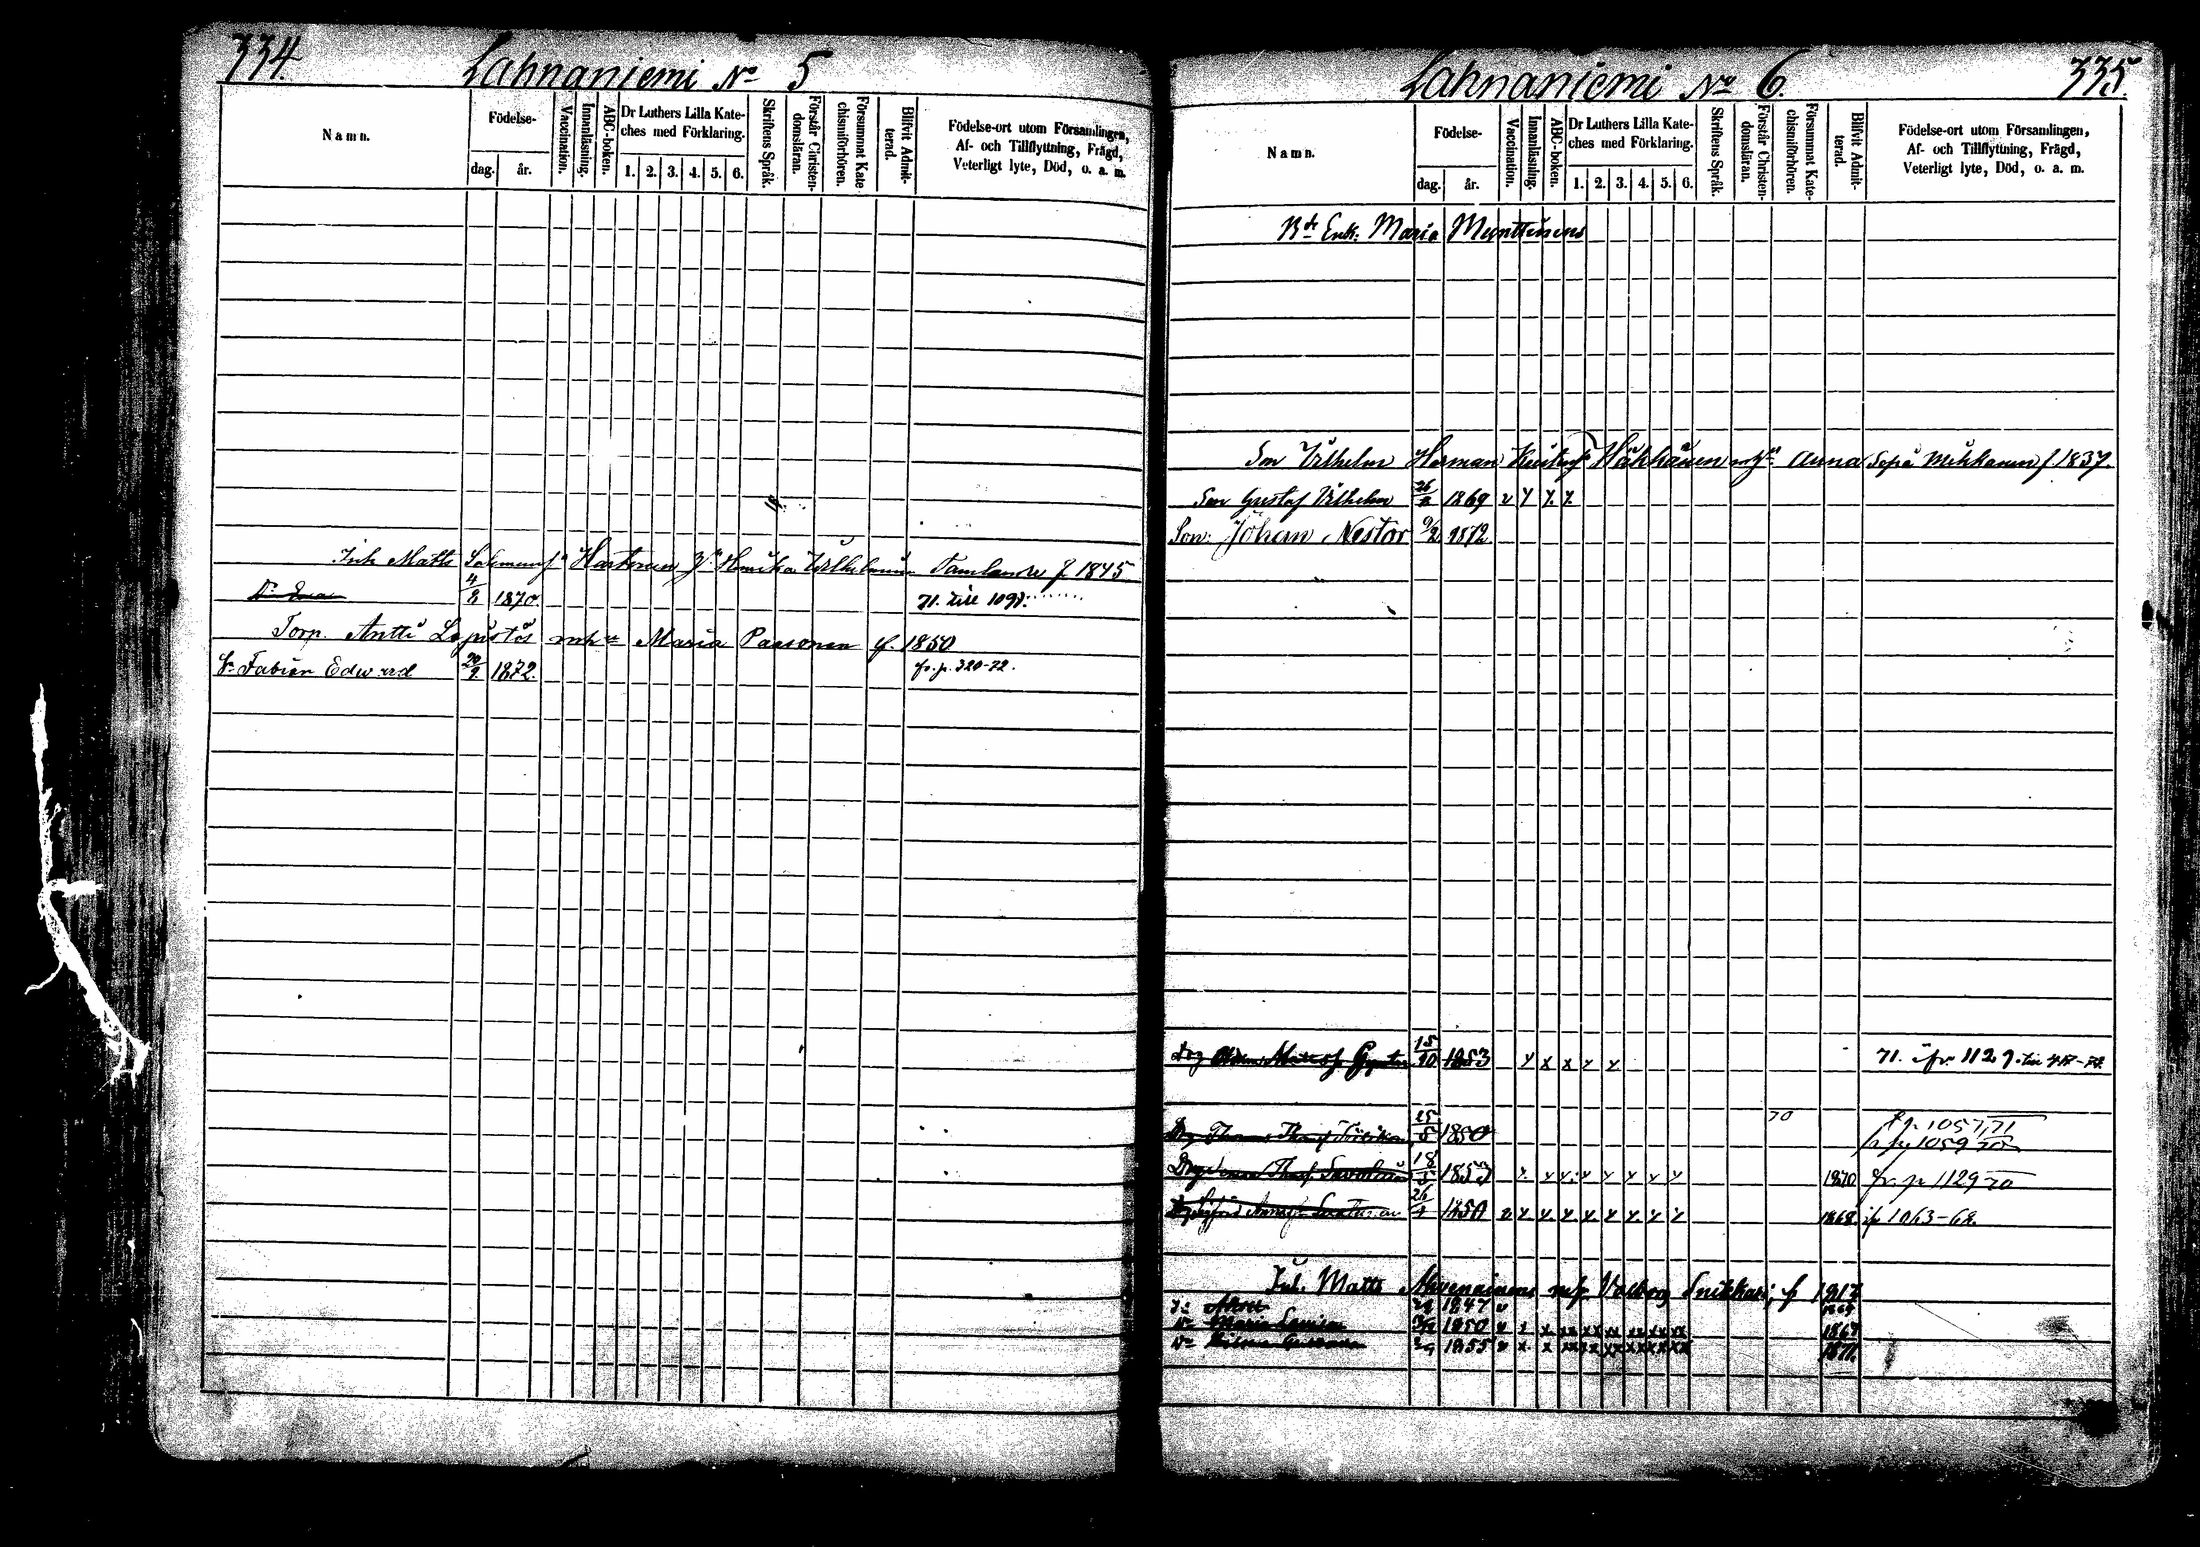 334.
Lahnaniemi No 5
Namn.
Födelse-
dag.
år.
Vaccination.
Innanläsning.
ABC-boken.
Dr Luthers Lilla Kate-
ches med Förklaring.
1. 2. 3. 4. 5. 6.
Skriftens Språk.
Förstår Christen-
domsläran.
Försummat Kate-
chismiförhören.
Blifvit Admit-
terad.
Födelse-ort utom Församlingen,
Af- och Tillflyttning, Frägd,
Veterligt lyte, Död, o. a. m.
Inh Matts Hartonen Wilhelmina f 1845
Dr Eva 4/8 1870. 71. till 1098.
Torp. Antti mh Maria Paasonen f. 1850
Sr Fabian Edward 20/9 1872. fr. p. 320-72.
Lahnaniemi No 6.
335.
Namn.
Födelse-
dag.
år.
Vaccination.
Innanläsning.
ABC-boken.
Dr Luthers Lilla Kate-
ches med Förklaring.
1. 2. 3. 4. 5. 6.
Skriftens Språk.
Förstår Christen-
domsläran.
Försummat Kate-
chismiförhören.
Blifvit Admit-
terad.
Födelse-ort utom Församlingen,
Af- och Tillflyttning, Frägd,
Veterligt lyte, Död, o. a. m.
Bde Enk: Maria Munttinens
Son Vilhelm Herman Häkkänen Anna Sofia Mikkonen f 1837.
Son Gustaf Vilhelm 26/8 1869
Son: Johan Nestor 9/2 1872
Drg 15/10 1853 71. ifr. 1129.
Drg Thomas 25/5 1850 70 f p. 1057, 71
1059 70
Drg 18/5 1853 1870 fr. p. 1129 70
26 1850 1868. if 1063-68.
Inh. Matts Ahvenainens Valborg Snikkari, f 1817
1847 1864
Dr Maria Lovisa 1850 1867
Dr 1855 1871.